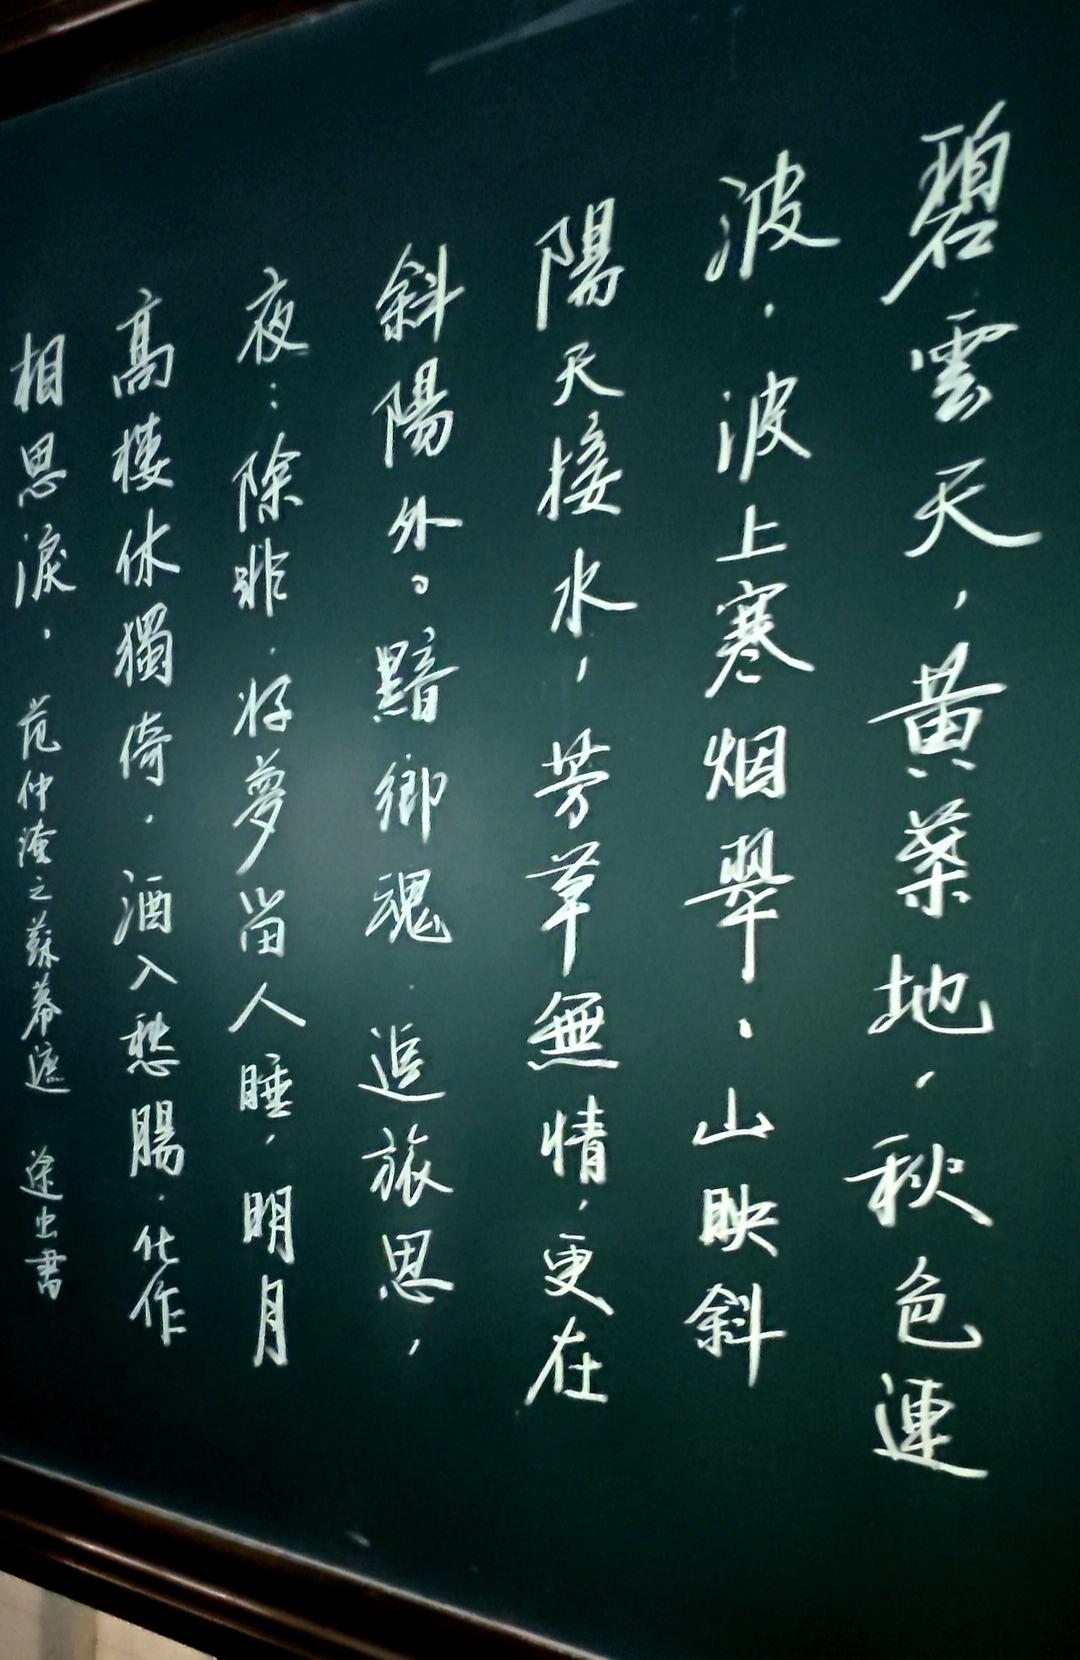 碧雲天，黃葉地，秋色連
波，波上寒烟翠，山映斜
陽天接水，芳草無情，更在
斜陽外。黯鄉魂，追旅思，
夜：除非，好夢留人睡，明月
高樓休獨倚，酒入愁腸，化作
相思淚，范仲淹之蘇幕遮 途虫書